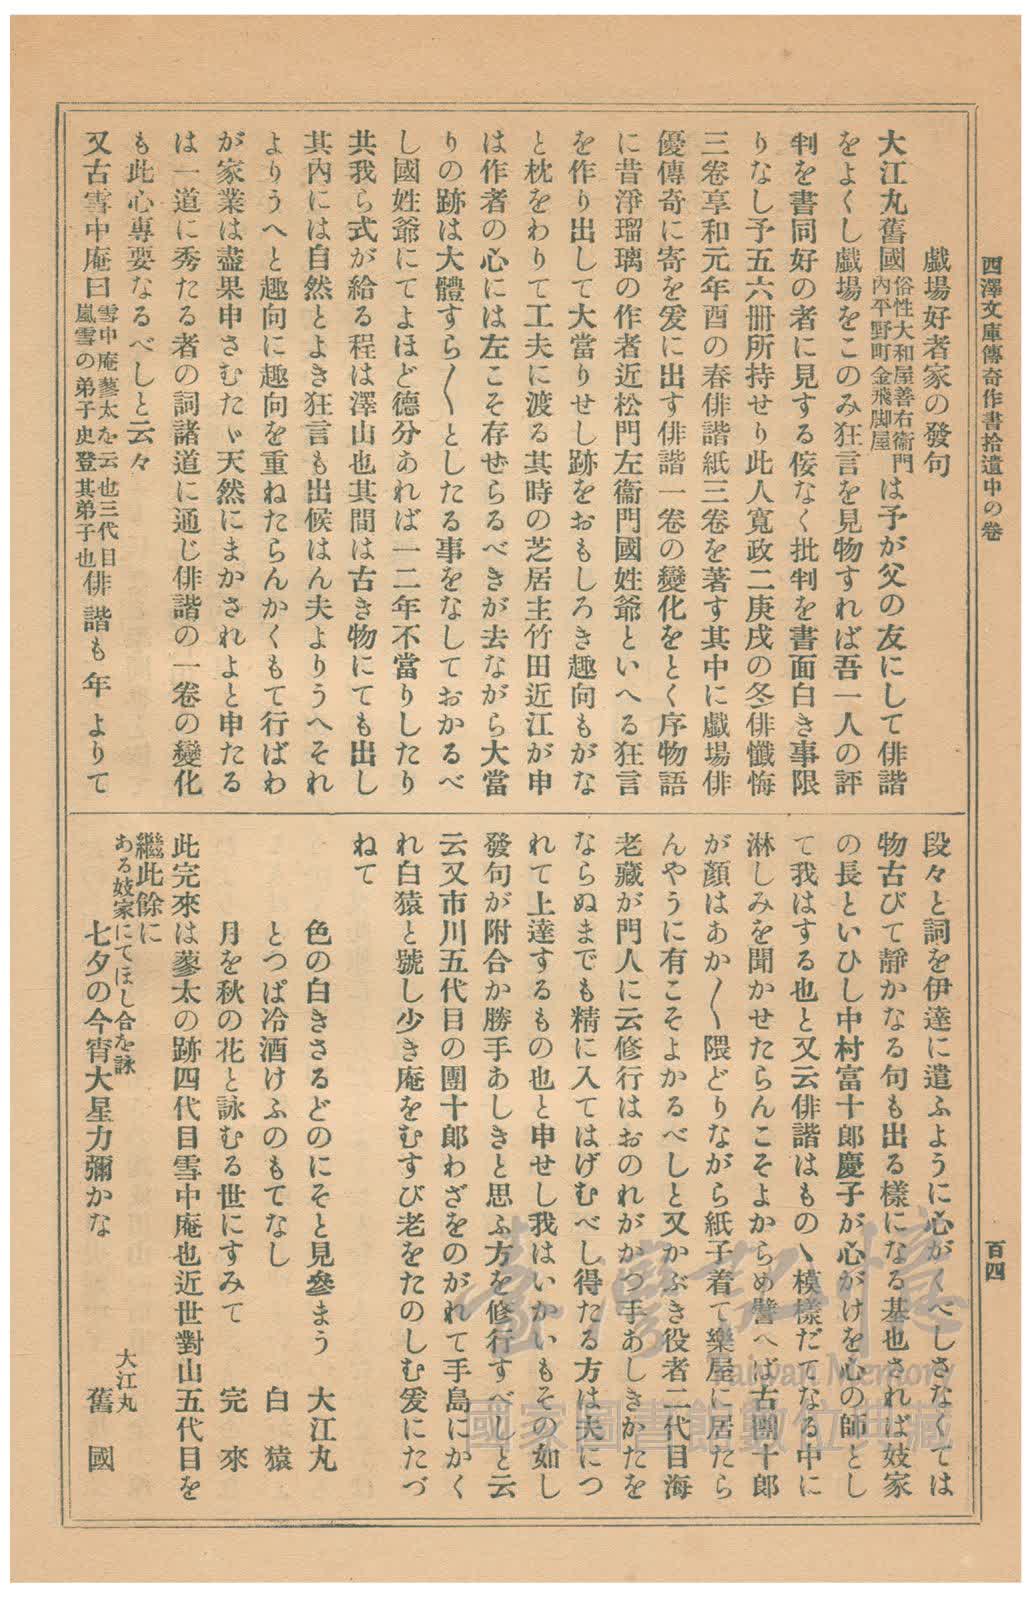 西澤文庫傳奇作書拾遺中の卷
百四
戯場好者家の發句
大江丸舊國俗性大和屋善右衞門內平野町金飛脚屋は予が父の友にして俳諧
をよくし戯場をこのみ狂言を見物すれば吾一人の評
判を書同好の者に見する侫なく批判を書面白き事限
りなし予五六冊所持せり此人寬政二庚戌の冬俳懺悔
三卷享和元年酉の春俳諧紙三卷を著す其中に戯場俳
優傳奇に寄を爰に出す俳諧一卷の變化をとく序物語
に昔淨瑠璃の作者近松門左衞門國姓爺といへる狂言
を作り出して大當りせし跡をおもしろき趣向もがな
と枕をわりて工夫に渡る其時の芝居主竹田近江が申
は作者の心には左こそ存ぜらるべきが去ながら大當
りの跡は大體すら〳〵としたる事をなしておかるべ
し國姓爺にてよほど德分あれば一二年不當りしたり
共我ら式が給る程は澤山也其間は古き物にても出し
其內には自然とよき狂言も出候はん夫よりうへそれ
よりうへと趣向に趣向を重ねたらんかくもて行ばわ
が家業は盡果申さむたゞ天然にまかされよと申たる
は一道に秀たる者の詞諸道に通じ俳諧の一卷の變化
も此心專要なるべしと云々
又古雪中庵曰雪中庵蓼太を云也三代目嵐雪の弟子史登其弟子也俳諧も年よりて
段々と詞を伊達に遣ふように心がくべしさなくては
物古びて靜かなる句も出る樣になる基也されば妓家
の長といひし中村富十郎慶子が心がけを心の師とし
て我はする也と又云俳諧はものゝ模樣だてなる中に
淋しみを聞かせたらんこそよからめ譬へば古團十郎
が顏はあか〳〵隈どりながら紙子着て樂屋に居たら
んやうに有こそよかるべしと又かぶき役者二代目海
老藏が門人に云修行はおのれがかつ手あしきかたを
ならぬまでも精に入てはげむべし得たる方は夫につ
れて上達するもの也と申せし我はいかいもその如し
發句が附合か勝手あしきと思ふ方を修行すべしと云
云又市川五代目の團十郎わざをのがれて手島にかく
れ白猿と號し少き庵をむすび老をたのしむ爰にたづ
ねて
色の白きさるどのにそと見參まう　大江丸
とつぱ冷酒けふのもてなし　白猿
月を秋の花と詠むる世にすみて　完來
此完來は蓼太の跡四代目雪中庵也近世對山五代目を
繼此餘に
ある妓家にてほし合を詠　大江丸
七夕の今宵大星力彌かな　舊國
臺灣記憶
Taiwan Memory
國家圖書館數位典藏